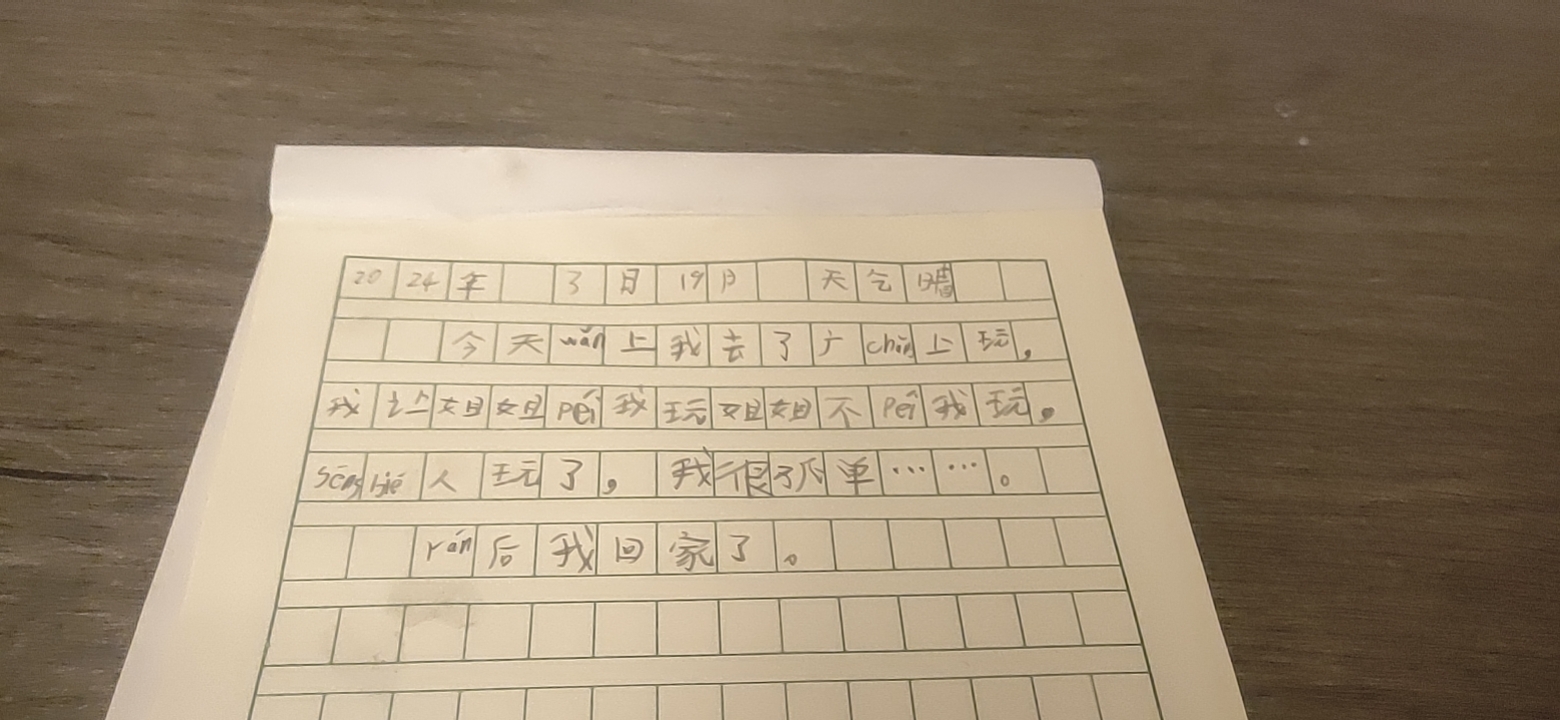 2024年 3月19日 天气晴
今天wǎn上我去了广chǎng上玩，
我让姐姐péi我玩姐姐不péi我玩。
人玩了，我很孤单……。
rán后我回家了。